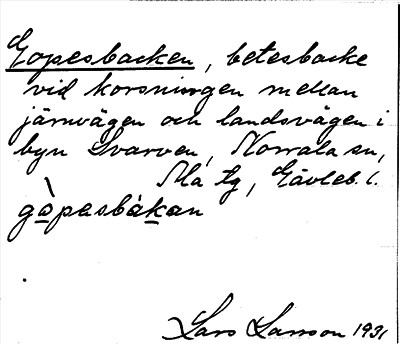 Gopesbacken, betesbacke
vid korsningen mellan
järnvägen och landsvägen i
byn Svarven, Norrala sn,
Ala tg, Gävleb. l.
gòpesbàkan
Lars Larsson 1931